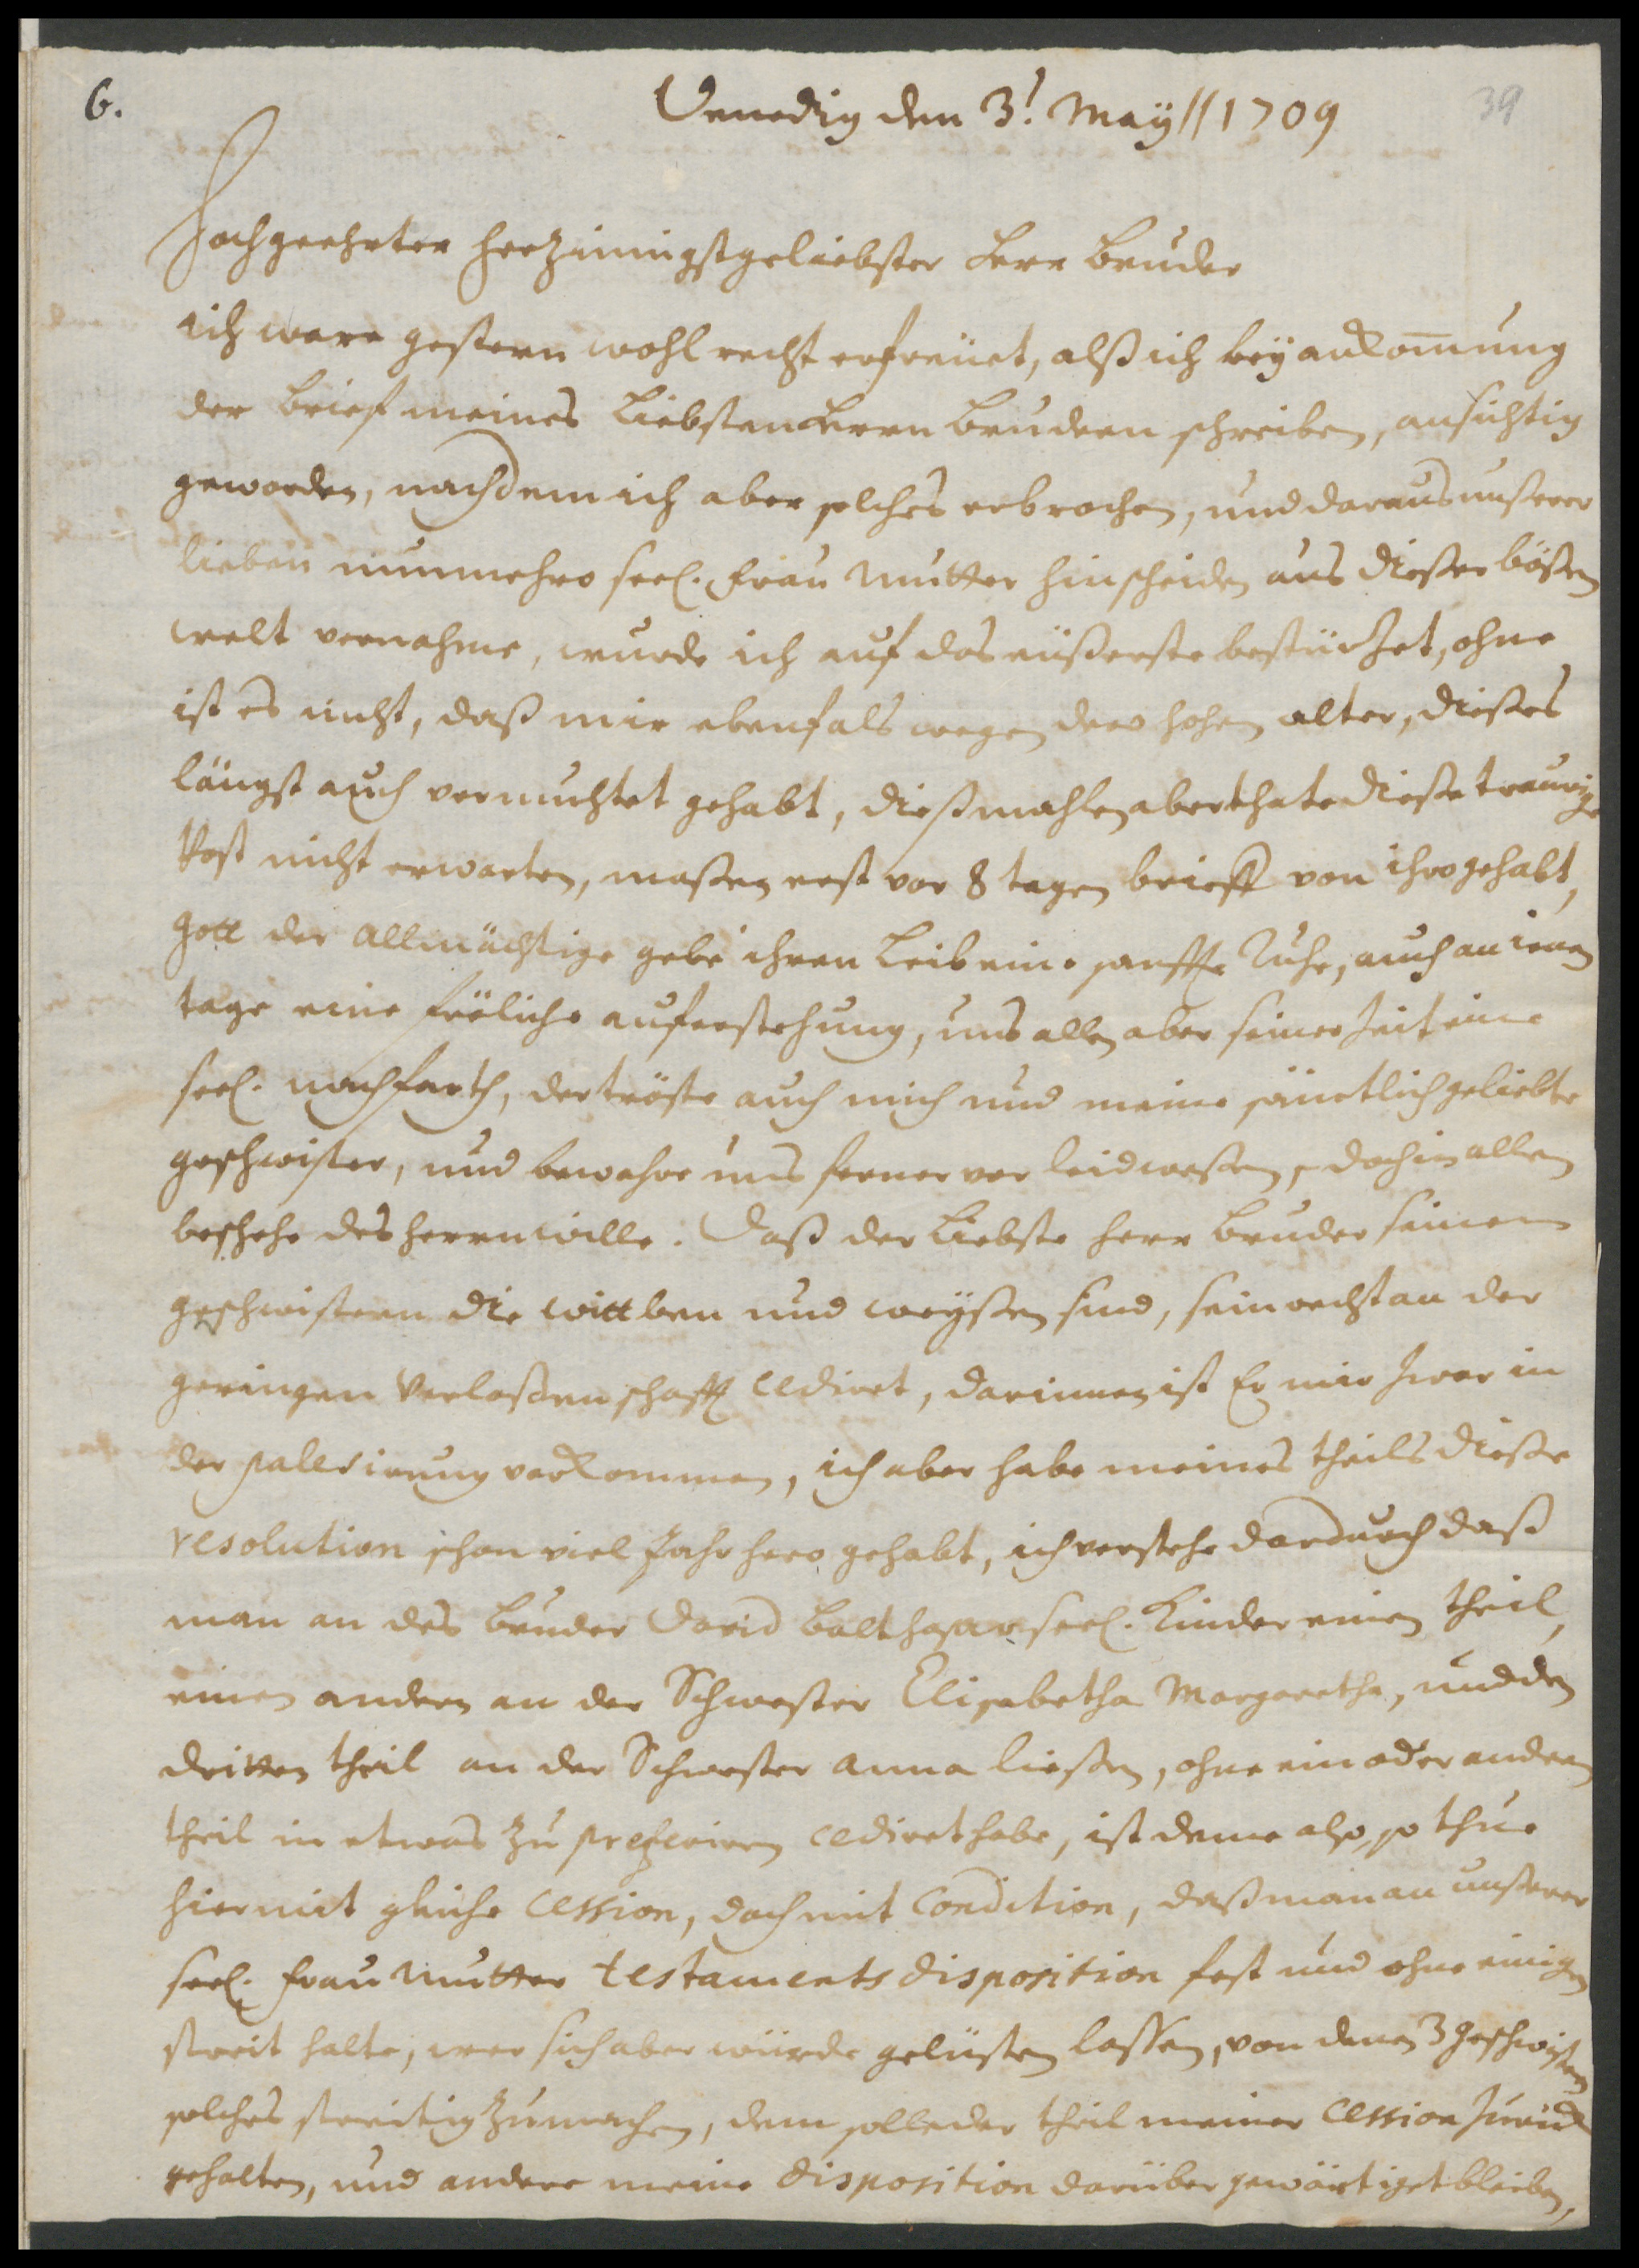 6.
Venedig den 3! May // 1709
39
Hochgeehrter hertzinnigstgeliebster Herr Bruder
ich ware gestern wohl recht erfreüet, alß ich bey ankom̄ung
der brief meines Liebsten Herrn Brudern schreiben, ansichtig
geworden, nachdem ich aber solches erbrochen, und daraus unßerer
lieben nunmehro seel. Frau Mutter hinscheiden aus dießer bößen
welt vernahme, wurde ich auf das eüßerste bestürtzet, ohne
ist es nicht, daß mir ebenfals wegen dero hohen alter, dießes
längst auch vermuhtet gehabt, dießmahlen aber thate dieße traurige
Post nicht erwarten, maßen erst vor 8 tagen brieff von ihro gehabt,
gott der Allmächtige gebe ihren Leib eine sanffte Ruhe, auch an ienem
tage eine fröliche auferstehung, uns allen aber seiner Zeit eine
seel. nachfarth, der tröste auch mich und meine sämtlich geliebte
geschwister, und bewahre uns ferner vor leidweßen, doch in allem
beschehe des herrn wille. Daß der Liebste Herr Bruder seinen
geschwistern die wittben und weyßen sind, sein recht an der
geringen Verlaßenschafft cediret, darinnen ist Er mir zwar in
der palesirung vorkommen, ich aber habe meines theils dieße
resolution schon viel Jahr hero gehabt, ich verstehe dardurch daß
man an des Bruder David Balthasar seel. Kinder einen theil,
einen andern an der Schwester Elisabetha Margaretha, und den
dritten theil an der Schwester Anna ließen, ohne ein oder andern
theil in etwas zu preferiren cediret habe, ist deme also, so thue
hiermit gleiche Cession, doch mit Condition, daß man an unßerer
seel. Frau Mutter testaments disposition fest und ohne einigen
streit halte, wer sich aber würde gelüsten lassen, von denen 3 geschwistern
solches streitig zu machen, dem solle der theil meiner Cession zurück
gehalten, und andere meine disposition darüber gewärtiget bleiben,